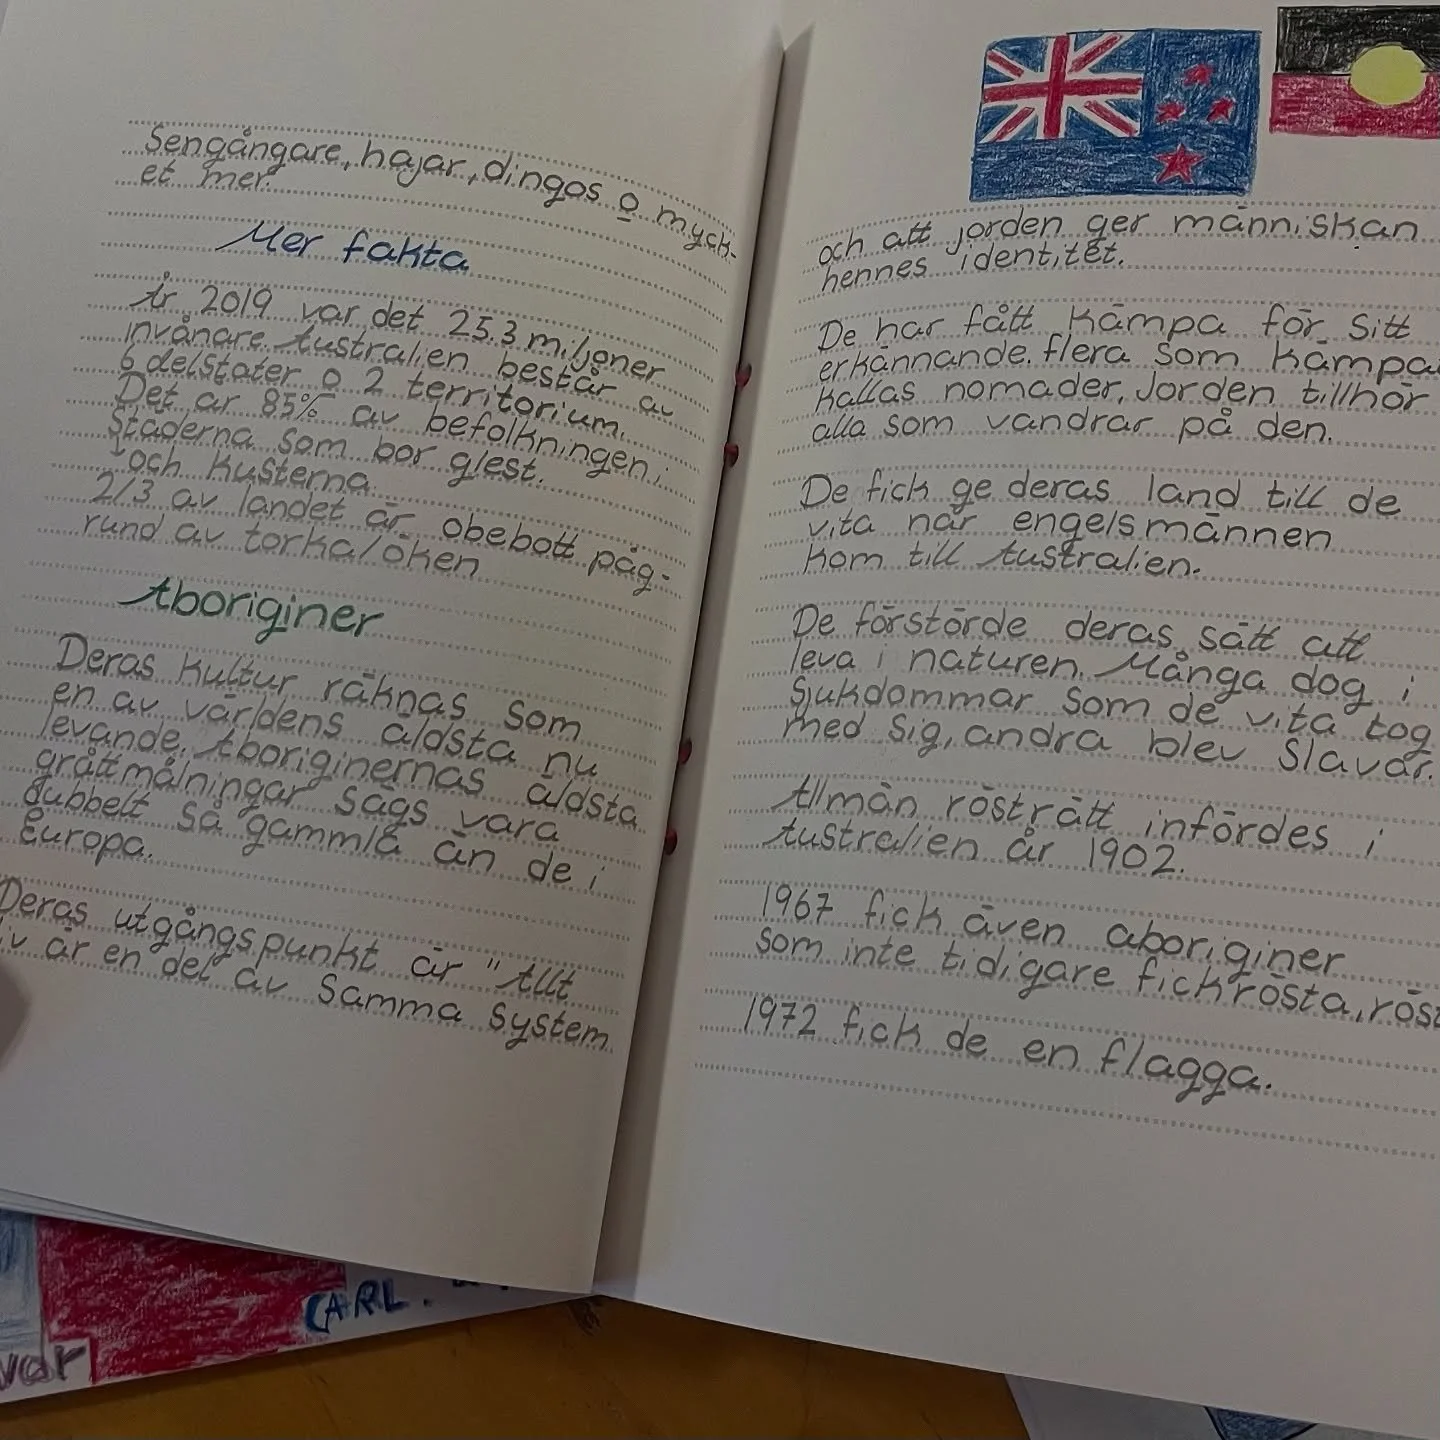 Sengångare, hajar, dingos o myck-
et mer.
Mer fakta
År 2019 var det 25.3 miljoner
invånare. Australien består av
6 delstater o 2 territorium.
Det är 85% av befolkningen i
städerna som bor glest.
och kusterna.
2/3 av landet är obebott påg-
rund av torka/öken
Aboriginer
Deras kultur räknas som
en av världens äldsta nu
levande. Aboriginernas äldsta
gråttmålningar sägs vara
dubbelt så gammla än de i
Europa.
Deras utgångspunkt är "Allt
liv är en del av samma system
och att jorden ger människan
hennes identitet.
De har fått kämpa för sitt
erkännande. flera som kämpa
kallas nomader. Jorden tillhör
alla som vandrar på den.
De fick ge deras land till de
vita när engelsmännen
kom till Australien.
De förstörde deras sätt att
leva i naturen. Många dog i
sjukdommar som de vita tog
med sig, andra blev slavar.
Allmän rösträtt infördes i
Australien år 1902.
1967 fick även aboriginer
som inte tidigare fick rösta, röst
1972 fick de en flagga.
CARL.
var